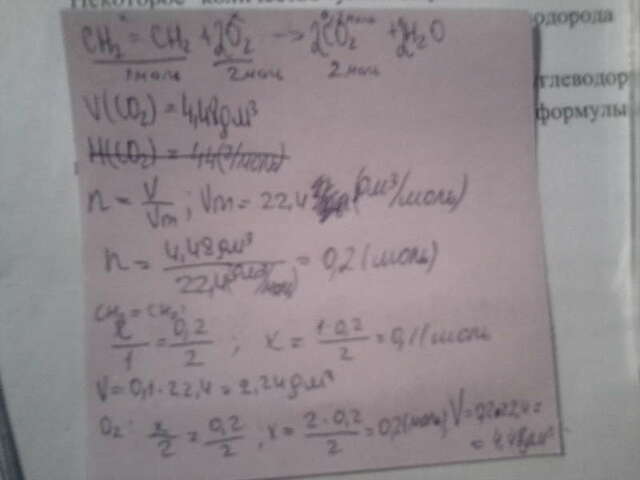 Некоторое
водорода
глеводор
формулы
CH₂ = CH₂ + 2O₂ → 2CO₂ + 2H₂O
1моль 2моль 2моль
V(CO₂) = 4,48дм³
M(CO₂) = 44(г/моль)
n = V/Vm ; Vm = 22,4 (дм³/моль)
n = 4,48дм³/22,4(дм³/моль) = 0,2(моль)
CH₂ = CH₂:
x/1 = 0,2/2 ; x = 1·0,2/2 = 0,1(моль
V = 0,1·22,4 = 2,24дм³
O₂: x/2 = 0,2/2 ; x = 2·0,2/2 = 0,2(моль) V = 0,2·22,4 =
= 4,48дм³